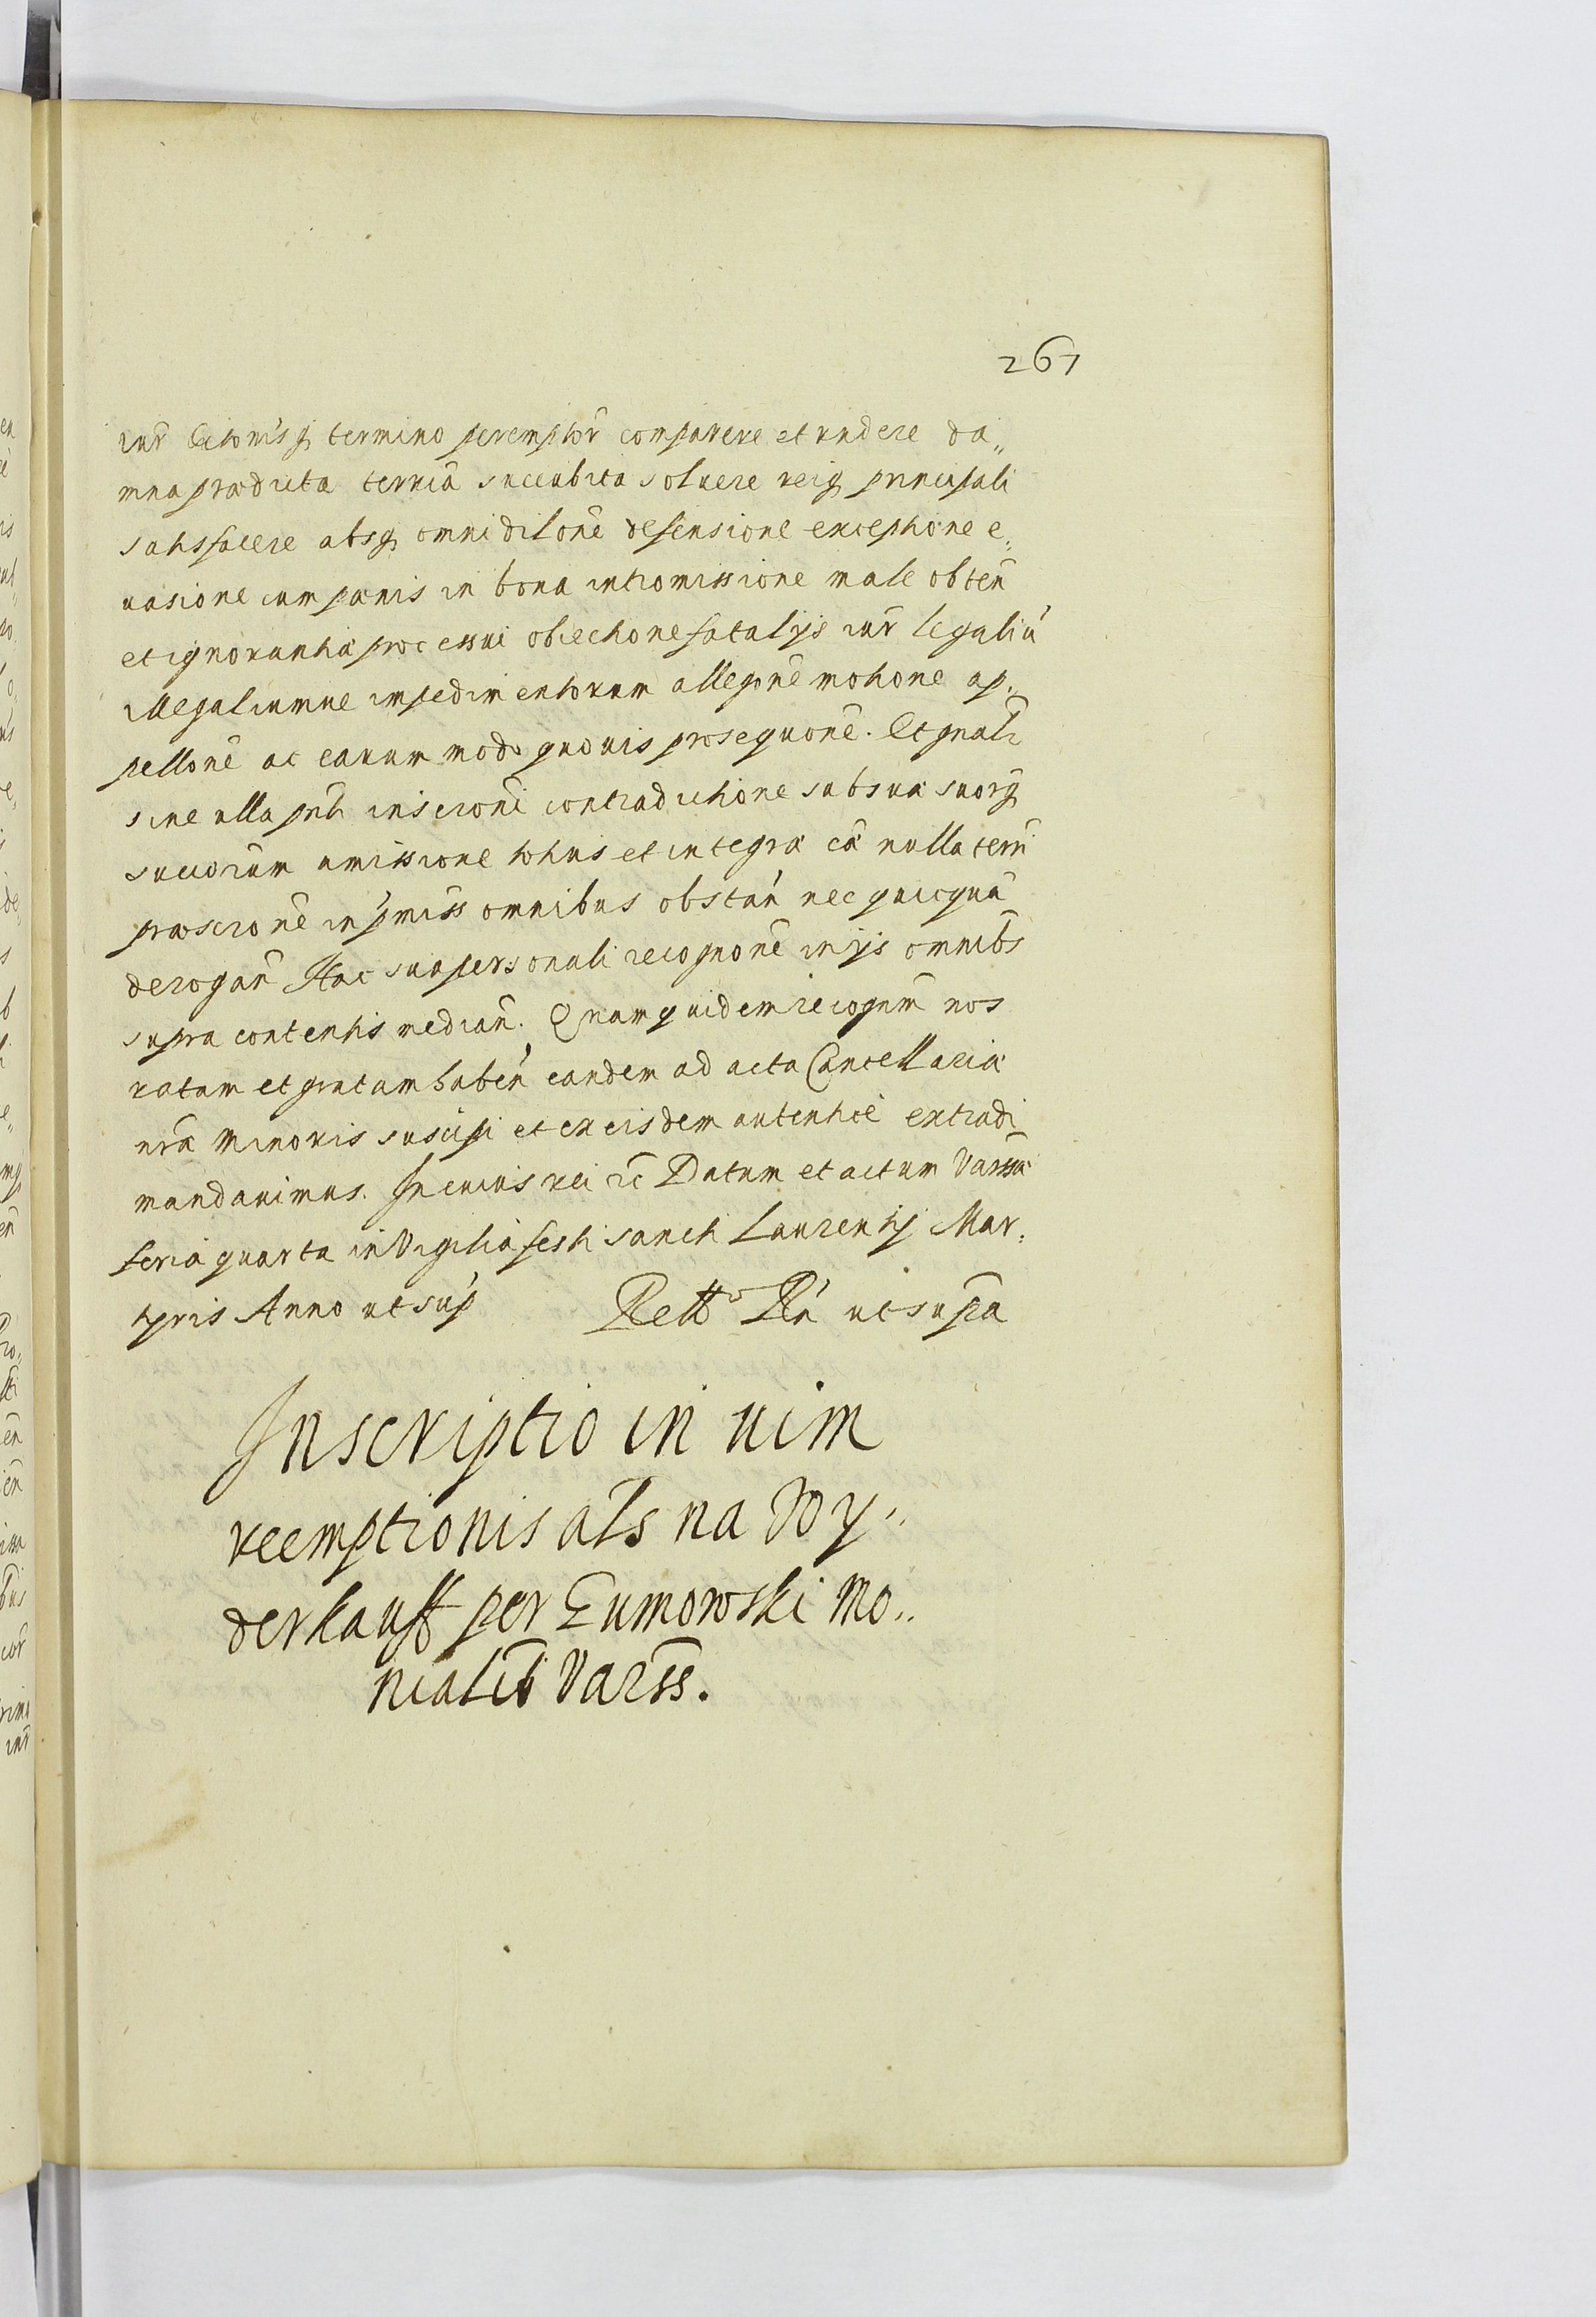 267
iur̃ Citonis'q̨ termino peremptor̃ comparere et rndere da„
mna prædicta terria᷈ succubita soluere reiq̨ principali
satisfacere absq̨ omni dilone᷈ defensione exceptione e„
uasione cum pænis in bona intromissione male obten̄
et ignorantiâ processui obiectione fatalijs iur̃ legaliu᷈
illegaliumue impedimentorum allegone᷈ motione ap„
pellone᷈ ac earum modo quouis prosequone᷈. Et gnalr̃
sine ulla pnti inscrioni contradictione sub sua suorq̨
succorum amissione totius et integra ea᷈ nulla terri
præscrione᷈ in p̃miss omnibus obstan̄ nec quicqua᷈
derogan̄ Hac sua personali recognone᷈ in ijs omnibs
supra contentis median̄. Quam quidem recognm̄ nos
ratam et gratam haben̄ eandem ad acta Cancellariæ
nr̃æ Minoris suscipi et ex eisdem autentice᷈ extradi
mandauimus. In cuius rei rc̃ Datum et actum Varssæ
feria quarta in Vigilia festi Sancti Laurentij Mar„
tyris Anno ut sup̃ Rellõ R̃n ut supra
Inscriptio in uim
reemptionis als na Wy„
derkauff per Eumowski Mo„
nialib̃ Varss̃.